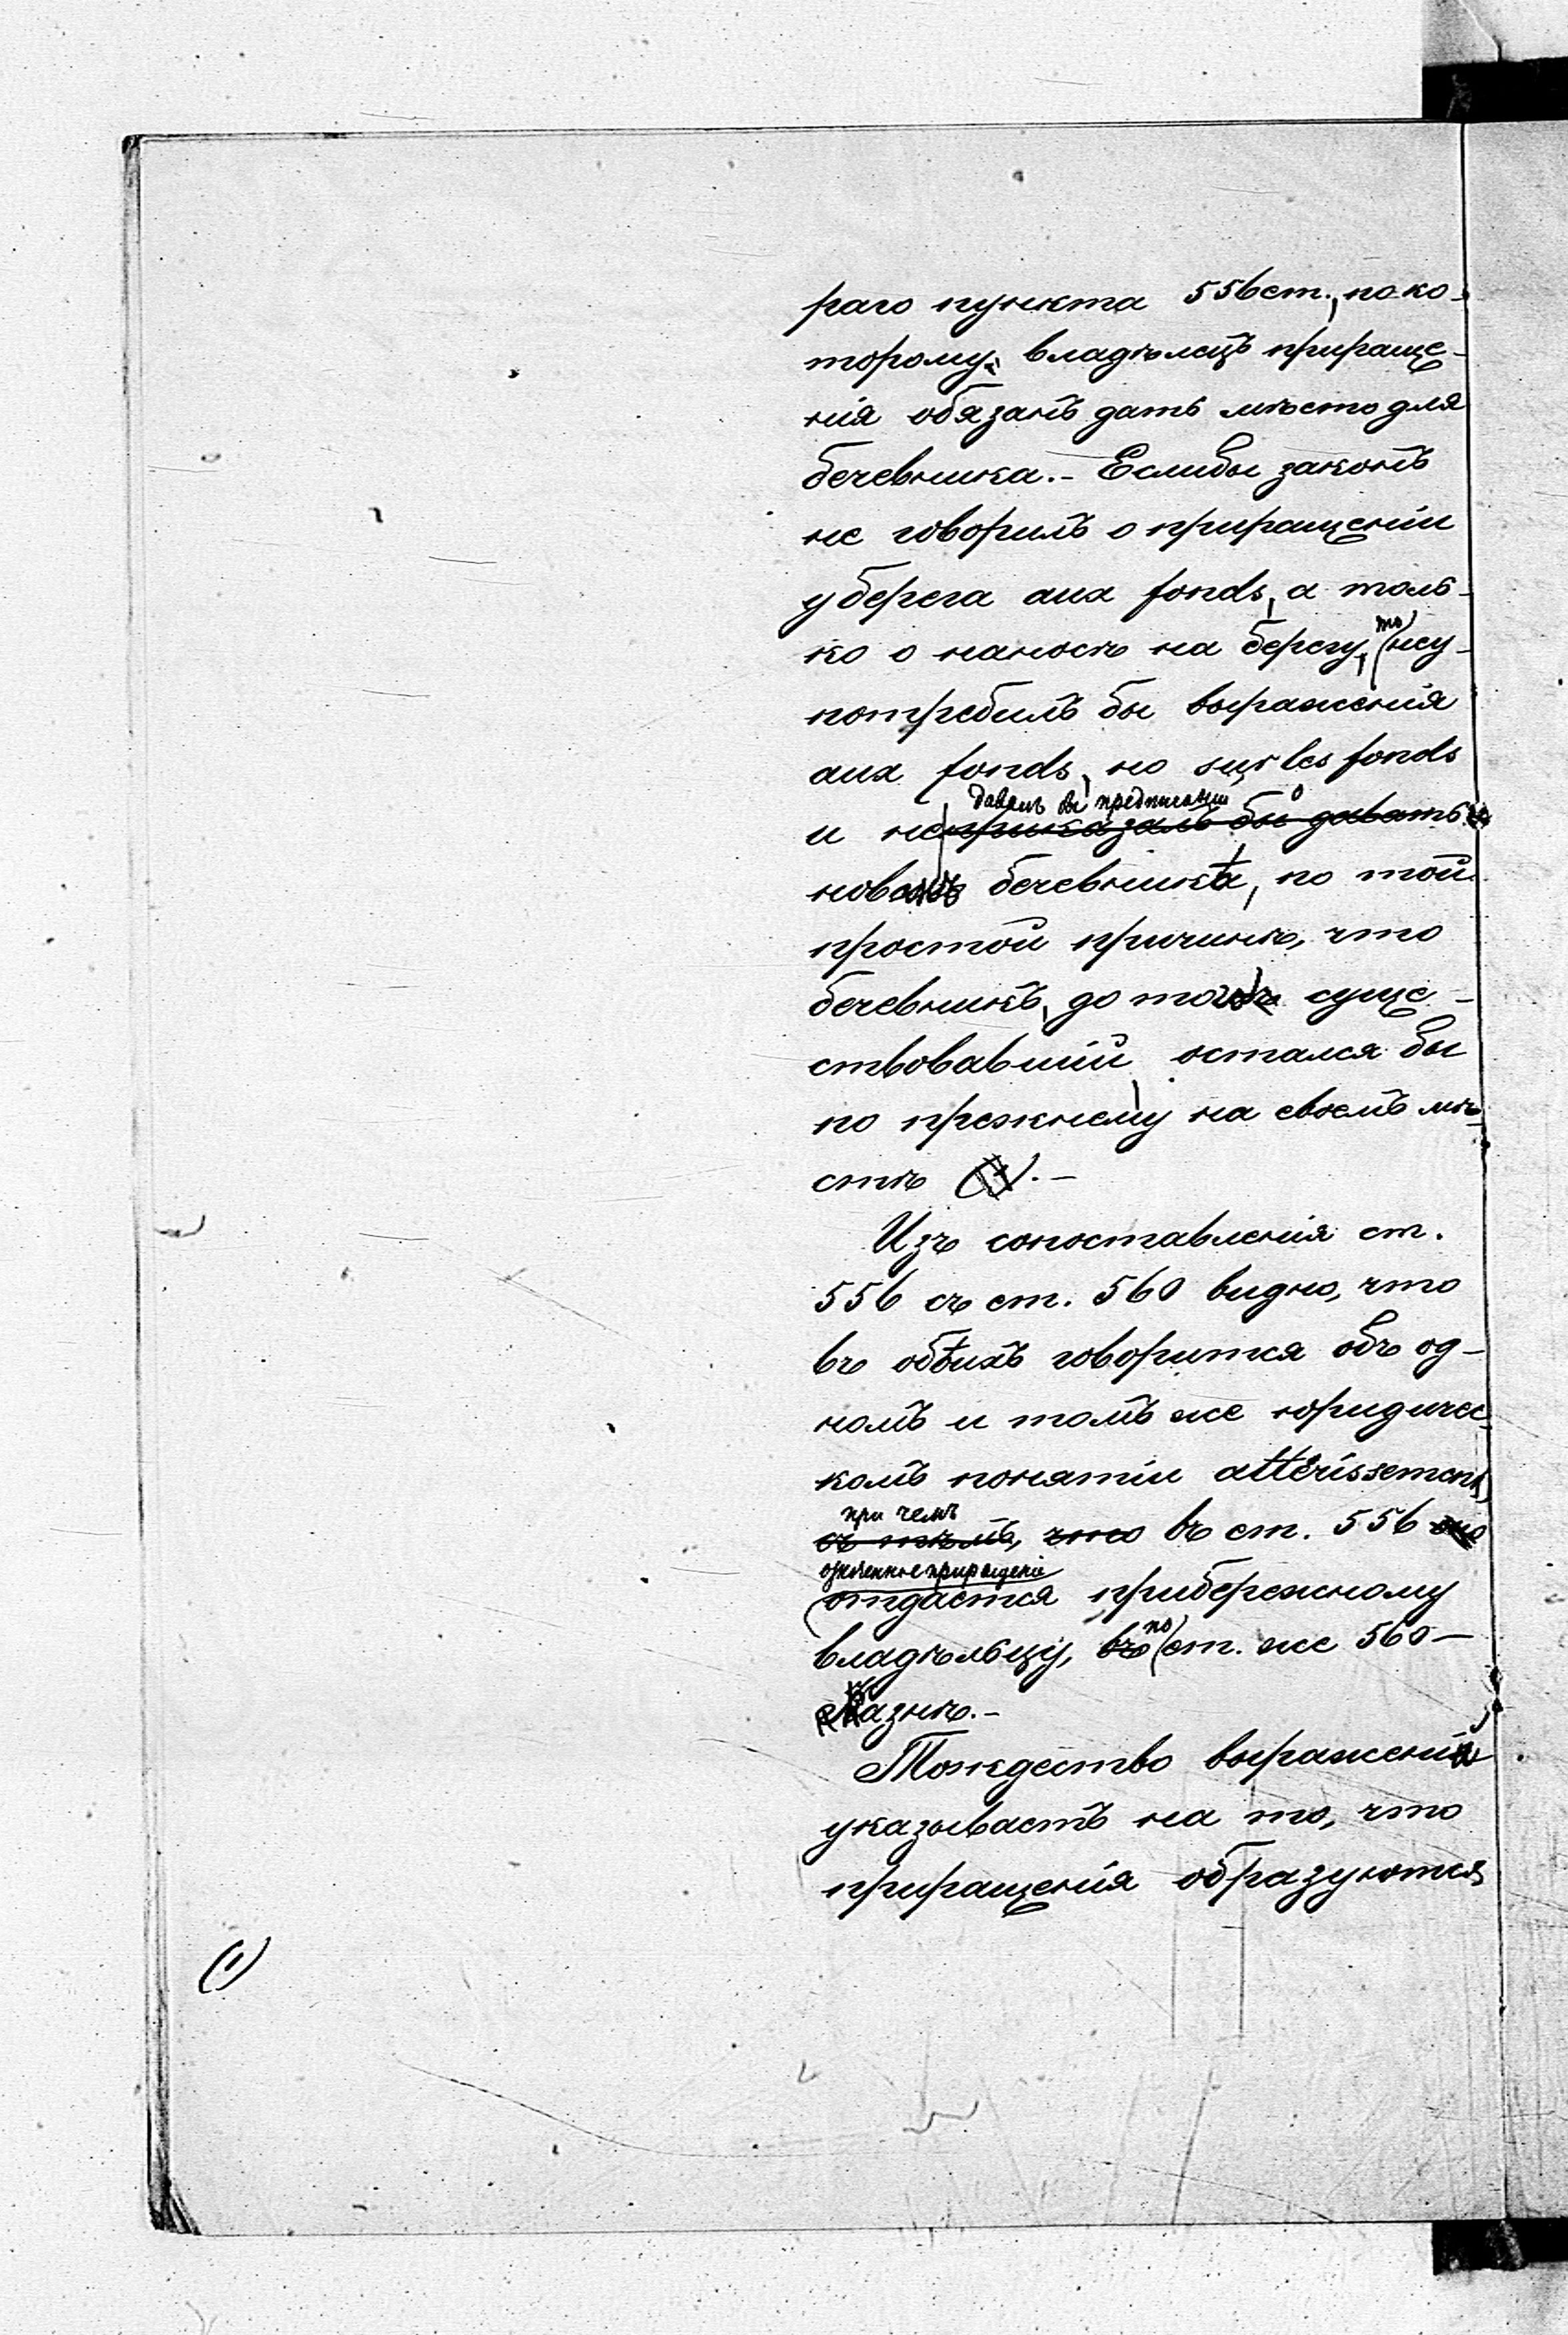 раго пункта 556 ст., по ко-
торому, владѣлецъ прираще-
нія обязанъ дать мѣсто для
бечевника.- Еслибы законъ
не говорилъ о приращеніи
у берега aux fonds, а толь-
ко о наносѣ на берегу, то не у-
потребилъ бы выраженія
aux fonds, но sur les fonds
давалъ бы предписанія о
и не приказалъ бы давать
новомъ бечевникѣ, по той
простой причинѣ, что
бечевникъ, до того суще-
ствовавшій, остался бы
по прежнему на своемъ мѣ-
стѣ (1).-
Изъ сопоставленія ст.
556 съ ст. 560 видно, что
въ обѣихъ говорится объ од-
номъ и томъ же юридичес-
комъ понятіи attérissement,
при чемъ
съ тѣмъ, что въ ст. 556 оно
означенное приращеніе
отдается прибережному
владѣльцу, въ по ст. же 560 -
казнѣ.-
Тождество выраженій
указываетъ на то, что
приращенія образуются
(1)